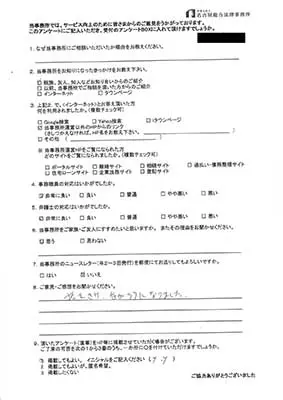 名古屋総合法律事務所
当事務所では、サービス向上のために皆さまからのご意見をうかがっております。
このアンケートにご記入いただき、受付のアンケートBOXに入れて頂けますでしょうか。
1. なぜ当事務所にご相談いただいたか理由をお教えください。
2. 当事務所をお知りになったきっかけをお教え下さい。
親族、友人、知人などお知り合いからのご紹介
以前、当事務所でご相談を頂いた方からのご紹介
インターネット □タウンページ
3. 上記2. で、(インターネット)とお答え頂いた方
何を利用されましたか。(複数チェック可)
□Google検索 □Yahoo検索 □iタウンページ
当事務所運営以外のHPからのリンク
(さしつかえなければ、HP名をお教え下さい。
□その他(
当事務所運営HPをご覧になられた方
どのサイトをご覧になられましたか。(複数チェック可)
□ポータルサイト □離婚サイト □相続サイト
□住宅ローンサイト □企業法務サイト □登記サイト
4. 事務職員の対応はいかがでしたか。
☑非常に良い □良い □普通 □やや悪い □悪い
5. 弁護士の対応はいかがでしたか。
☑非常に良い □良い □普通 □やや悪い □悪い
6. 当事務所をご家族・ご友人にすすめたいと思いますか。またその理由をお聞かせください。
☑思う □思わない
7. 当事務所のニュースレター(年2~3回発行)を郵便にてお送りしてもよろしいですか。
□はい ☑いいえ
8. ご意見・ご感想をお聞かせください。
9. 頂いたアンケート(直筆)をHP等に掲載させていただく場合がございます。
1 掲載してもよい。イニシャルをご記入ください(Y.Y)
2 掲載してもよいが、匿名希望。
3 掲載したくない
ご協力ありがとうございました